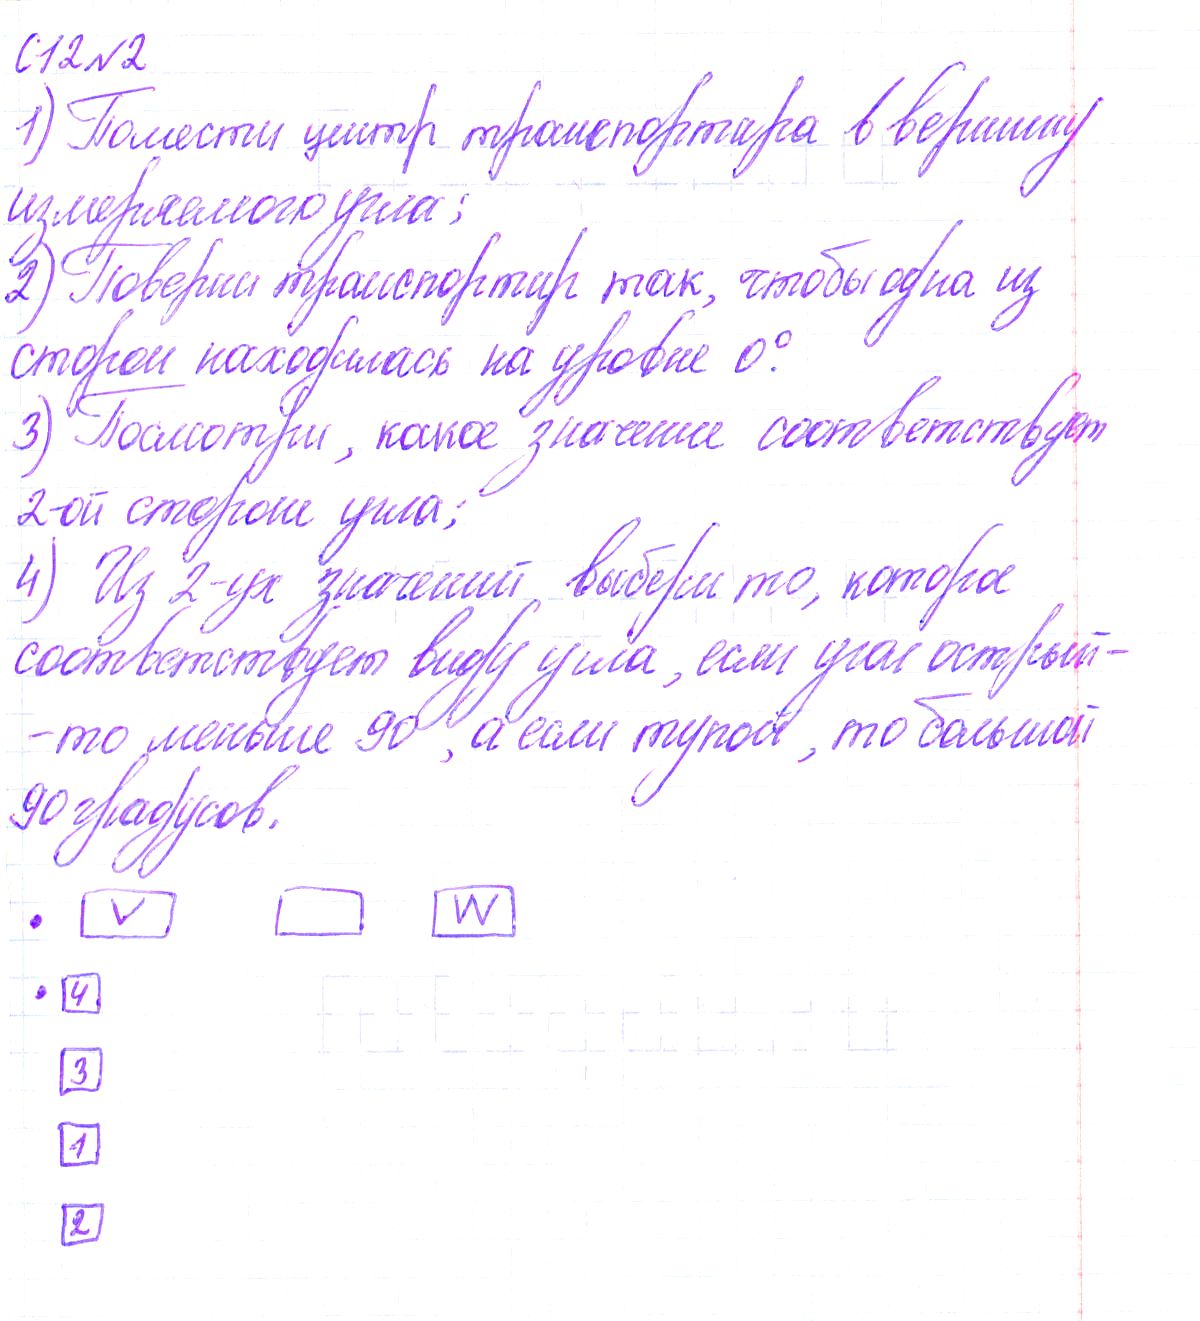 С12 №2
1) Помести центр транспортира в вершину
измеряемого угла;
2) Поверни транспортир так, чтобы одна из
сторон находилась на уровне 0°.
3) Посмотри, какое значение соответствует
2-ой стороне угла;
4) Из 2-ух значений выбери то, которое
соответствует виду угла, если угол острый-
-то меньше 90, а если тупой, то больший
90 градусов.
• V W
• 4
3
1
2